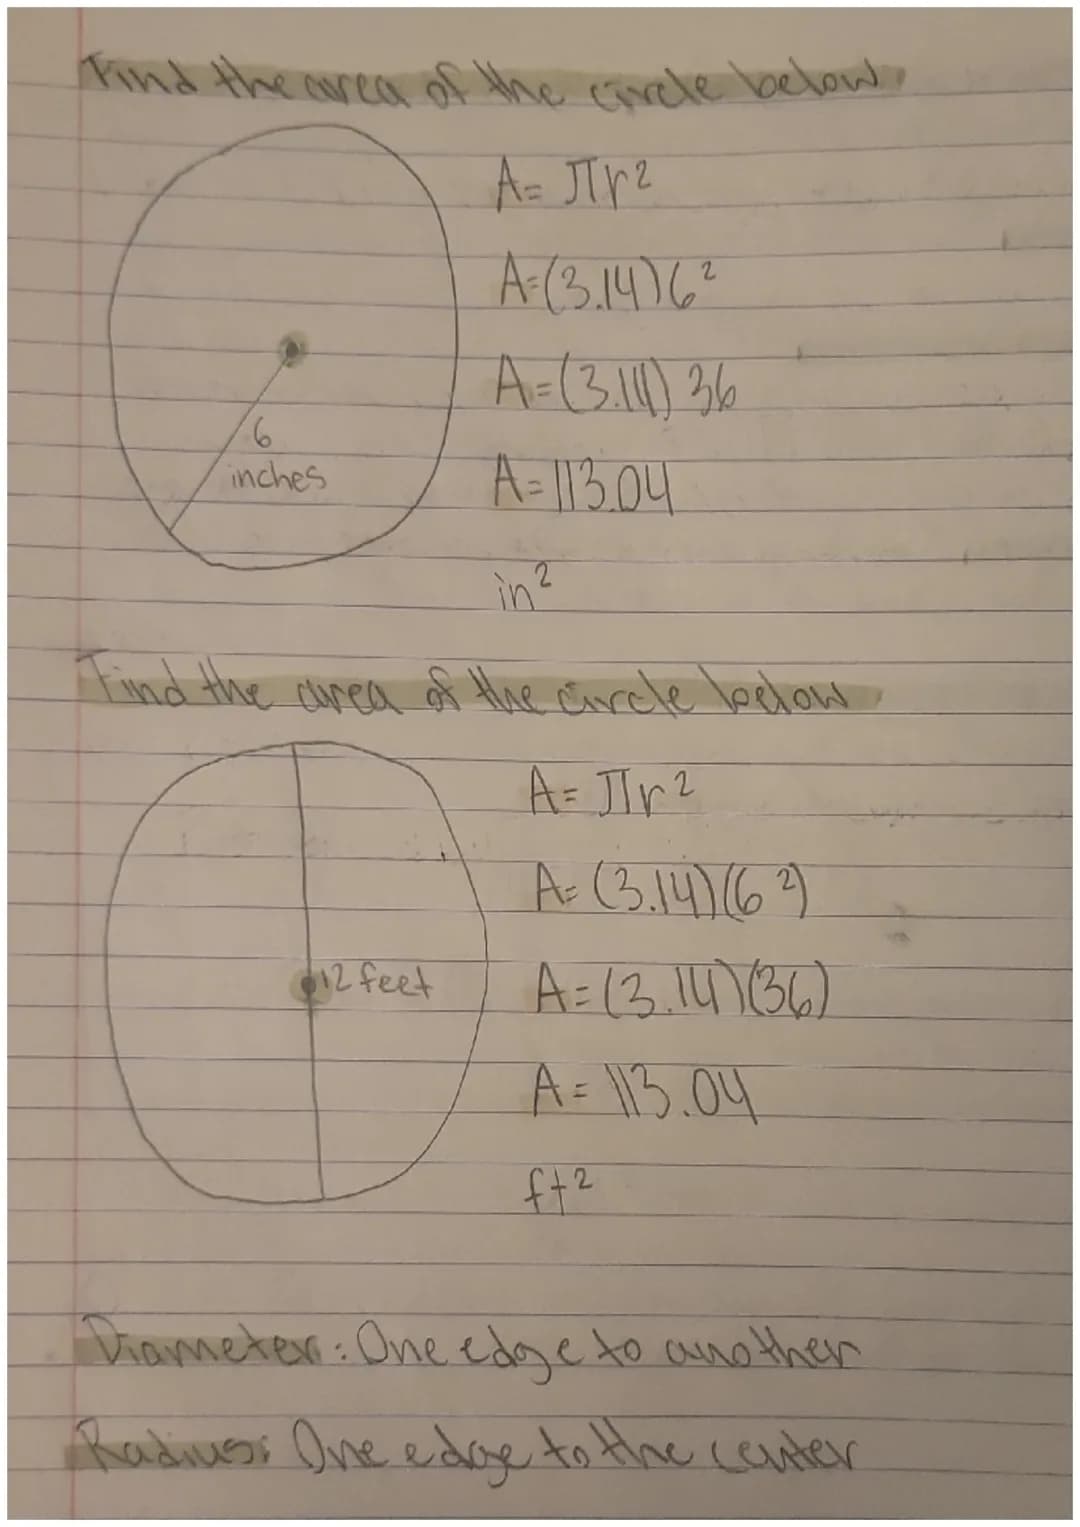 Find the area of the circle below
A= πr²
A=(3.14)6²
A=(3.14) 36
6
inches
A=113.04
in²
Find the area of the circle below
A= πr²
A= (3.14)(6²)
12 feet
A= (3.14)(36)
A= 113.04
ft²
Diameter: One edge to another
Radius: One edge to the center